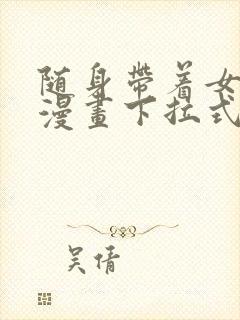 随身带着女
漫畫下拉式
吴倩